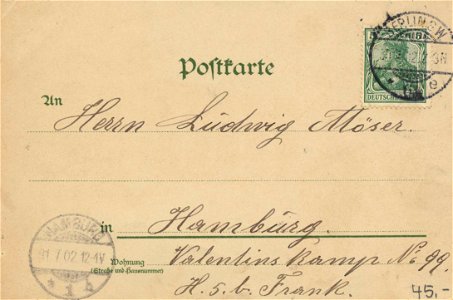 BERLIN S.W.
Postkarte
An
Herrn Ludwig Möser.
in Hamburg.
HAMBURG
31.7.02.12-1V
* 1 *
Wohnung
(Straße und Hausnummer)
Valentins Kamp No. 99.
H. s. b. Frank.
45,-